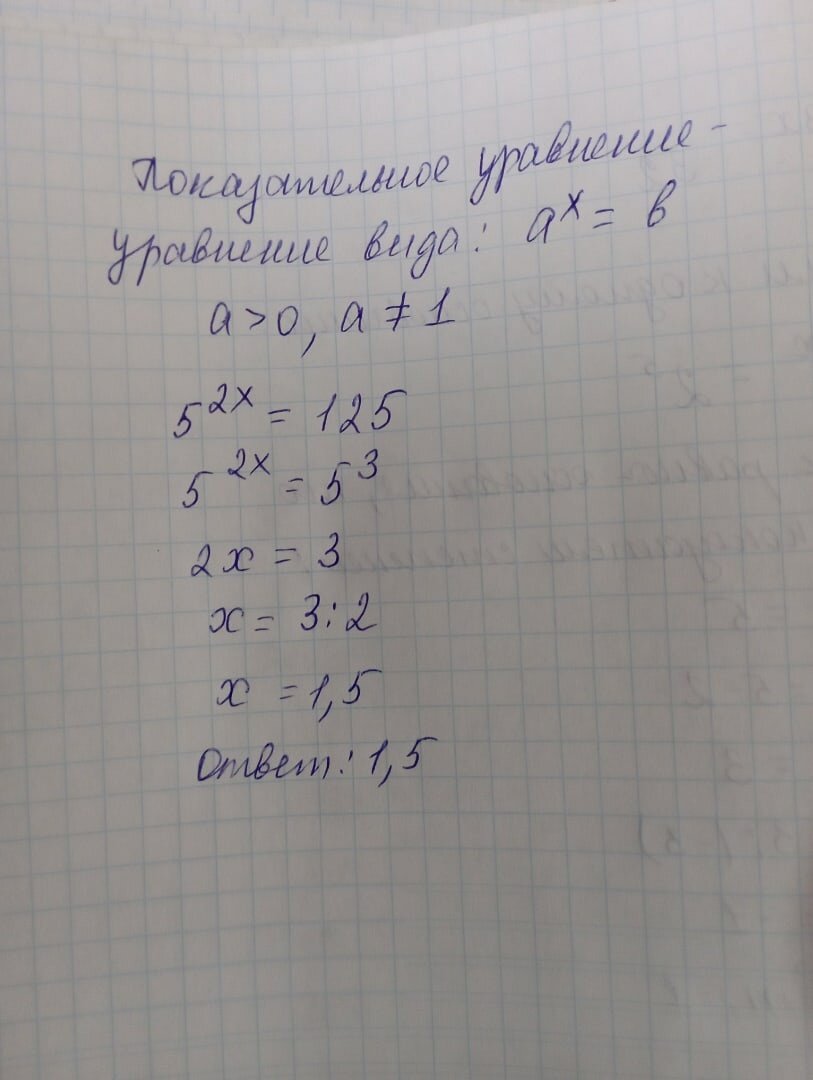 Показательное уравнение -
уравнение вида: aˣ = b
a > 0, a ≠ 1
5²ˣ = 125
5²ˣ = 5³
2x = 3
x = 3:2
x = 1,5
Ответ: 1,5